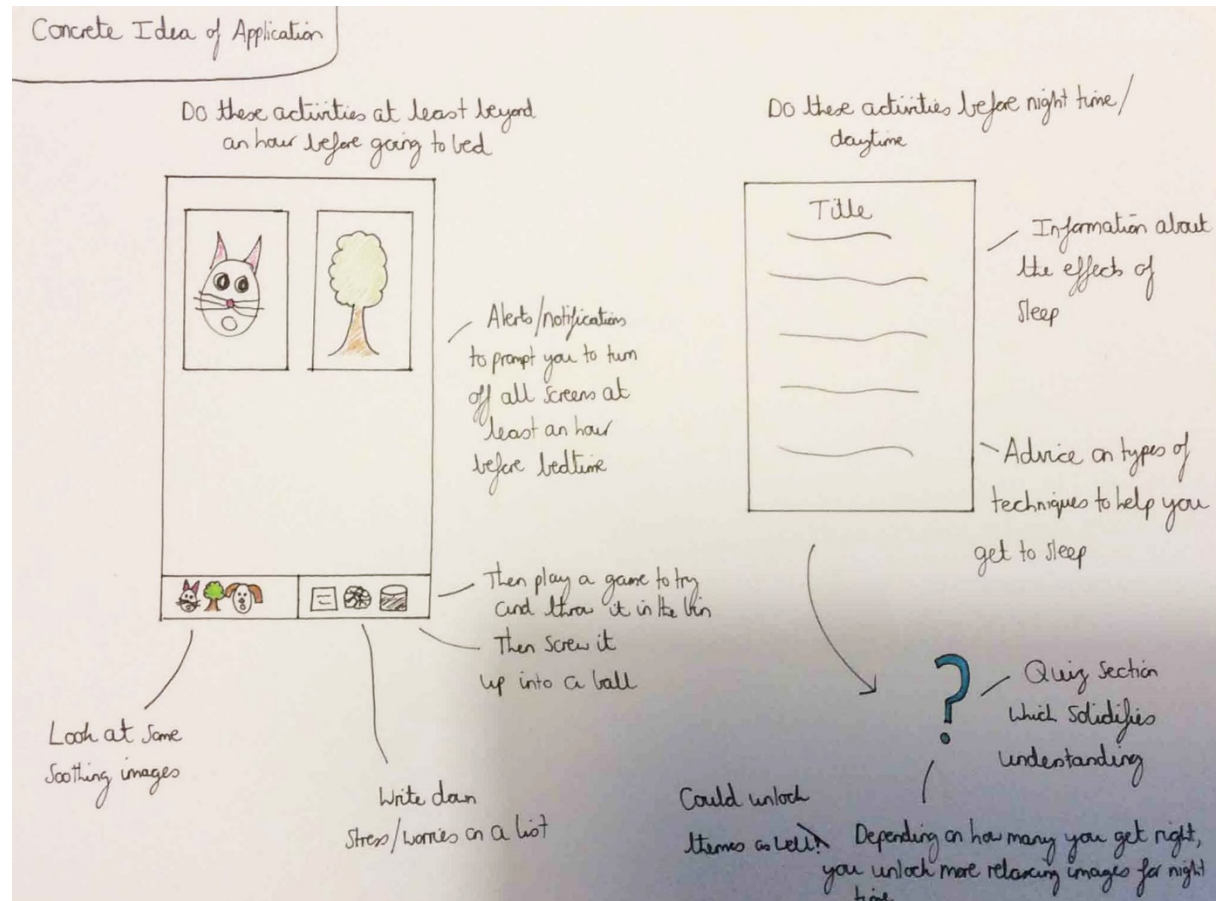 Concrete Idea of Application
Do these activities at least beyond
an hour before going to bed
Alerts/notifications
to prompt you to turn
off all screens at
least an hour
before bedtime
Then play a game to try
and throw it in the bin
Then screw it
up into a ball
Look at some
soothing images
Write down
stress/worries on a list
Do these activities before night time/
daytime
Title
Information about
the effects of
sleep
Advice on types of
techniques to help you
get to sleep
?
Quiz section
which solidifies
understanding
Could unlock
themes as well?
Depending on how many you get right,
you unlock more relaxing images for night
time